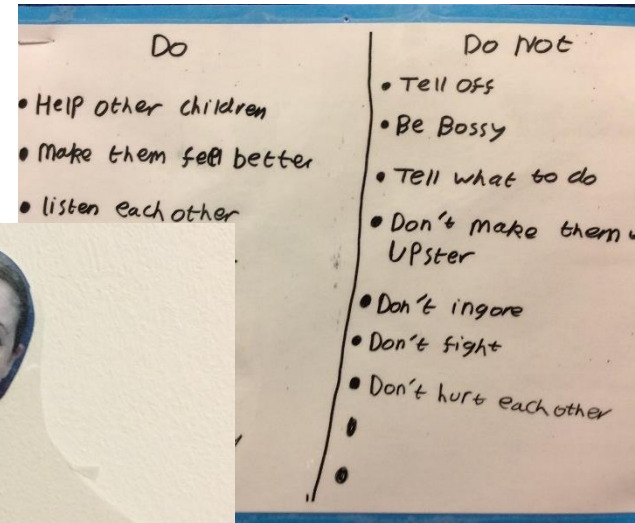 Do
• Help other children
• Make them feel better
• listen each other
Do Not
• Tell off
• Be Bossy
• Tell what to do
• Don't make them
UPster
• Don't ingore
• Don't fight
• Don't hurt each other